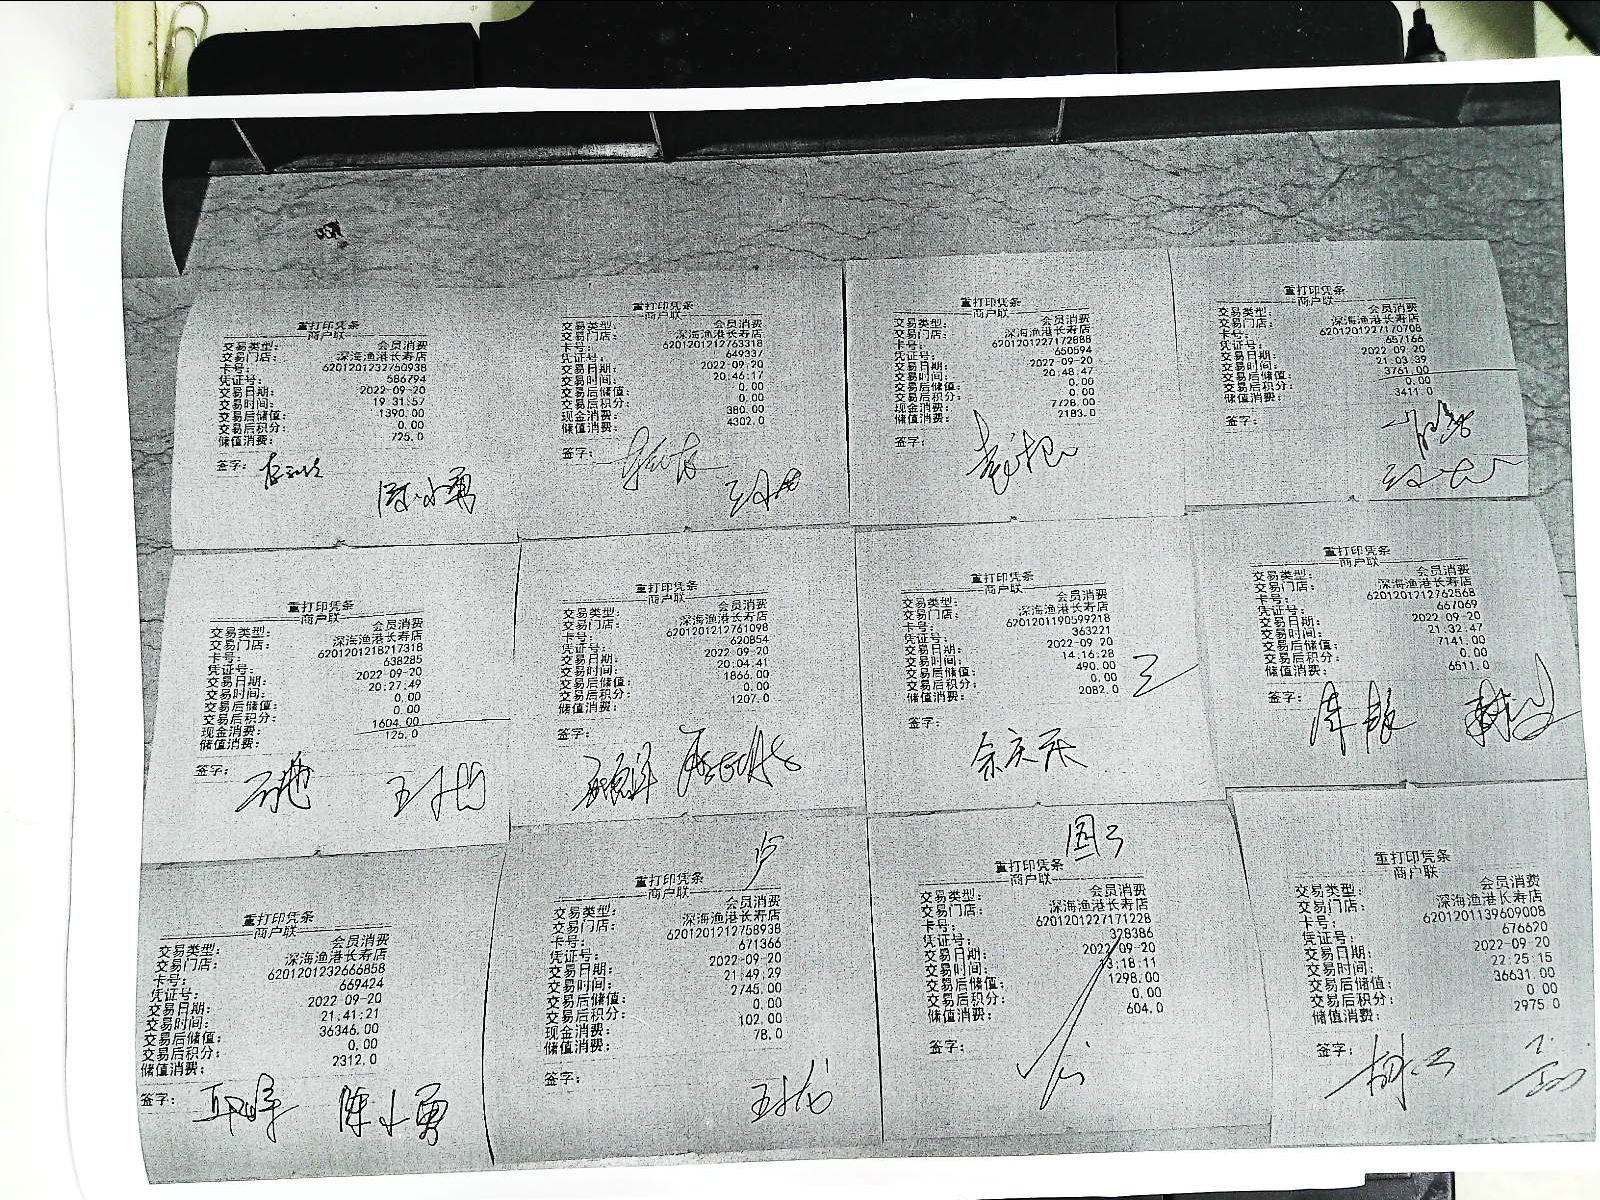 重打印凭条
商户联
交易类型: 会员消费
交易门店: 深海渔港长寿店
卡号: 6201201232760938
凭证号: 586794
交易日期: 2022-09-20
交易时间: 19:31:57
交易后储值: 1390.00
交易后积分: 0.00
储值消费: 725.0
签字:
重打印凭条
商户联
交易类型: 会员消费
交易门店: 深海渔港长寿店
卡号: 6201201212763318
凭证号: 649337
交易日期: 2022-09-20
交易时间: 20:46:17
交易后储值: 0.00
交易后积分: 0.00
现金消费: 380.00
储值消费: 4302.0
签字:
重打印凭条
商户联
交易类型: 会员消费
交易门店: 深海渔港长寿店
卡号: 6201201227172888
凭证号: 650594
交易日期: 2022-09-20
交易时间: 20:48:47
交易后储值: 0.00
交易后积分: 0.00
现金消费: 7728.00
储值消费: 2183.0
签字:
重打印凭条
商户联
交易类型: 会员消费
交易门店: 深海渔港长寿店
卡号: 6201201227170708
凭证号: 657166
交易日期: 2022-09-20
交易时间: 21:03:39
交易后储值: 3761.00
交易后积分: 0.00
储值消费: 3411.0
签字:
重打印凭条
商户联
交易类型: 会员消费
交易门店: 深海渔港长寿店
卡号: 6201201218717318
凭证号: 638285
交易日期: 2022-09-20
交易时间: 20:27:49
交易后储值: 0.00
交易后积分: 0.00
现金消费: 1604.00
储值消费: 125.0
签字:
重打印凭条
商户联
交易类型: 会员消费
交易门店: 深海渔港长寿店
卡号: 6201201212761098
凭证号: 620854
交易日期: 2022-09-20
交易时间: 20:04:41
交易后储值: 1866.00
交易后积分: 0.00
储值消费: 1207.0
签字:
重打印凭条
商户联
交易类型: 会员消费
交易门店: 深海渔港长寿店
卡号: 6201201190599218
凭证号: 363221
交易日期: 2022-09-20
交易时间: 14:16:28
交易后储值: 490.00
交易后积分: 0.00
储值消费: 2082.0
签字:
余庆乐
重打印凭条
商户联
交易类型: 会员消费
交易门店: 深海渔港长寿店
卡号: 6201201212762568
凭证号: 667069
交易日期: 2022-09-20
交易时间: 21:32:47
交易后储值: 7141.00
交易后积分: 0.00
储值消费: 6511.0
签字:
重打印凭条
商户联
交易类型: 会员消费
交易门店: 深海渔港长寿店
卡号: 6201201232666858
凭证号: 669424
交易日期: 2022-09-20
交易时间: 21:41:21
交易后储值: 36346.00
交易后积分: 0.00
储值消费: 2312.0
签字: 陈小勇
卢
重打印凭条
商户联
交易类型: 会员消费
交易门店: 深海渔港长寿店
卡号: 6201201212758938
凭证号: 671366
交易日期: 2022-09-20
交易时间: 21:49:29
交易后储值: 2745.00
交易后积分: 0.00
现金消费: 102.00
储值消费: 78.0
签字:
重打印凭条
商户联
交易类型: 会员消费
交易门店: 深海渔港长寿店
卡号: 6201201227171228
凭证号: 328386
交易日期: 2022-09-20
交易时间: 13:18:11
交易后储值: 1298.00
交易后积分: 0.00
储值消费: 604.0
签字:
重打印凭条
商户联
交易类型: 会员消费
交易门店: 深海渔港长寿店
卡号: 6201201139609008
凭证号: 676620
交易日期: 2022-09-20
交易时间: 22:25:15
交易后储值: 36631.00
交易后积分: 0.00
储值消费: 2975.0
签字: